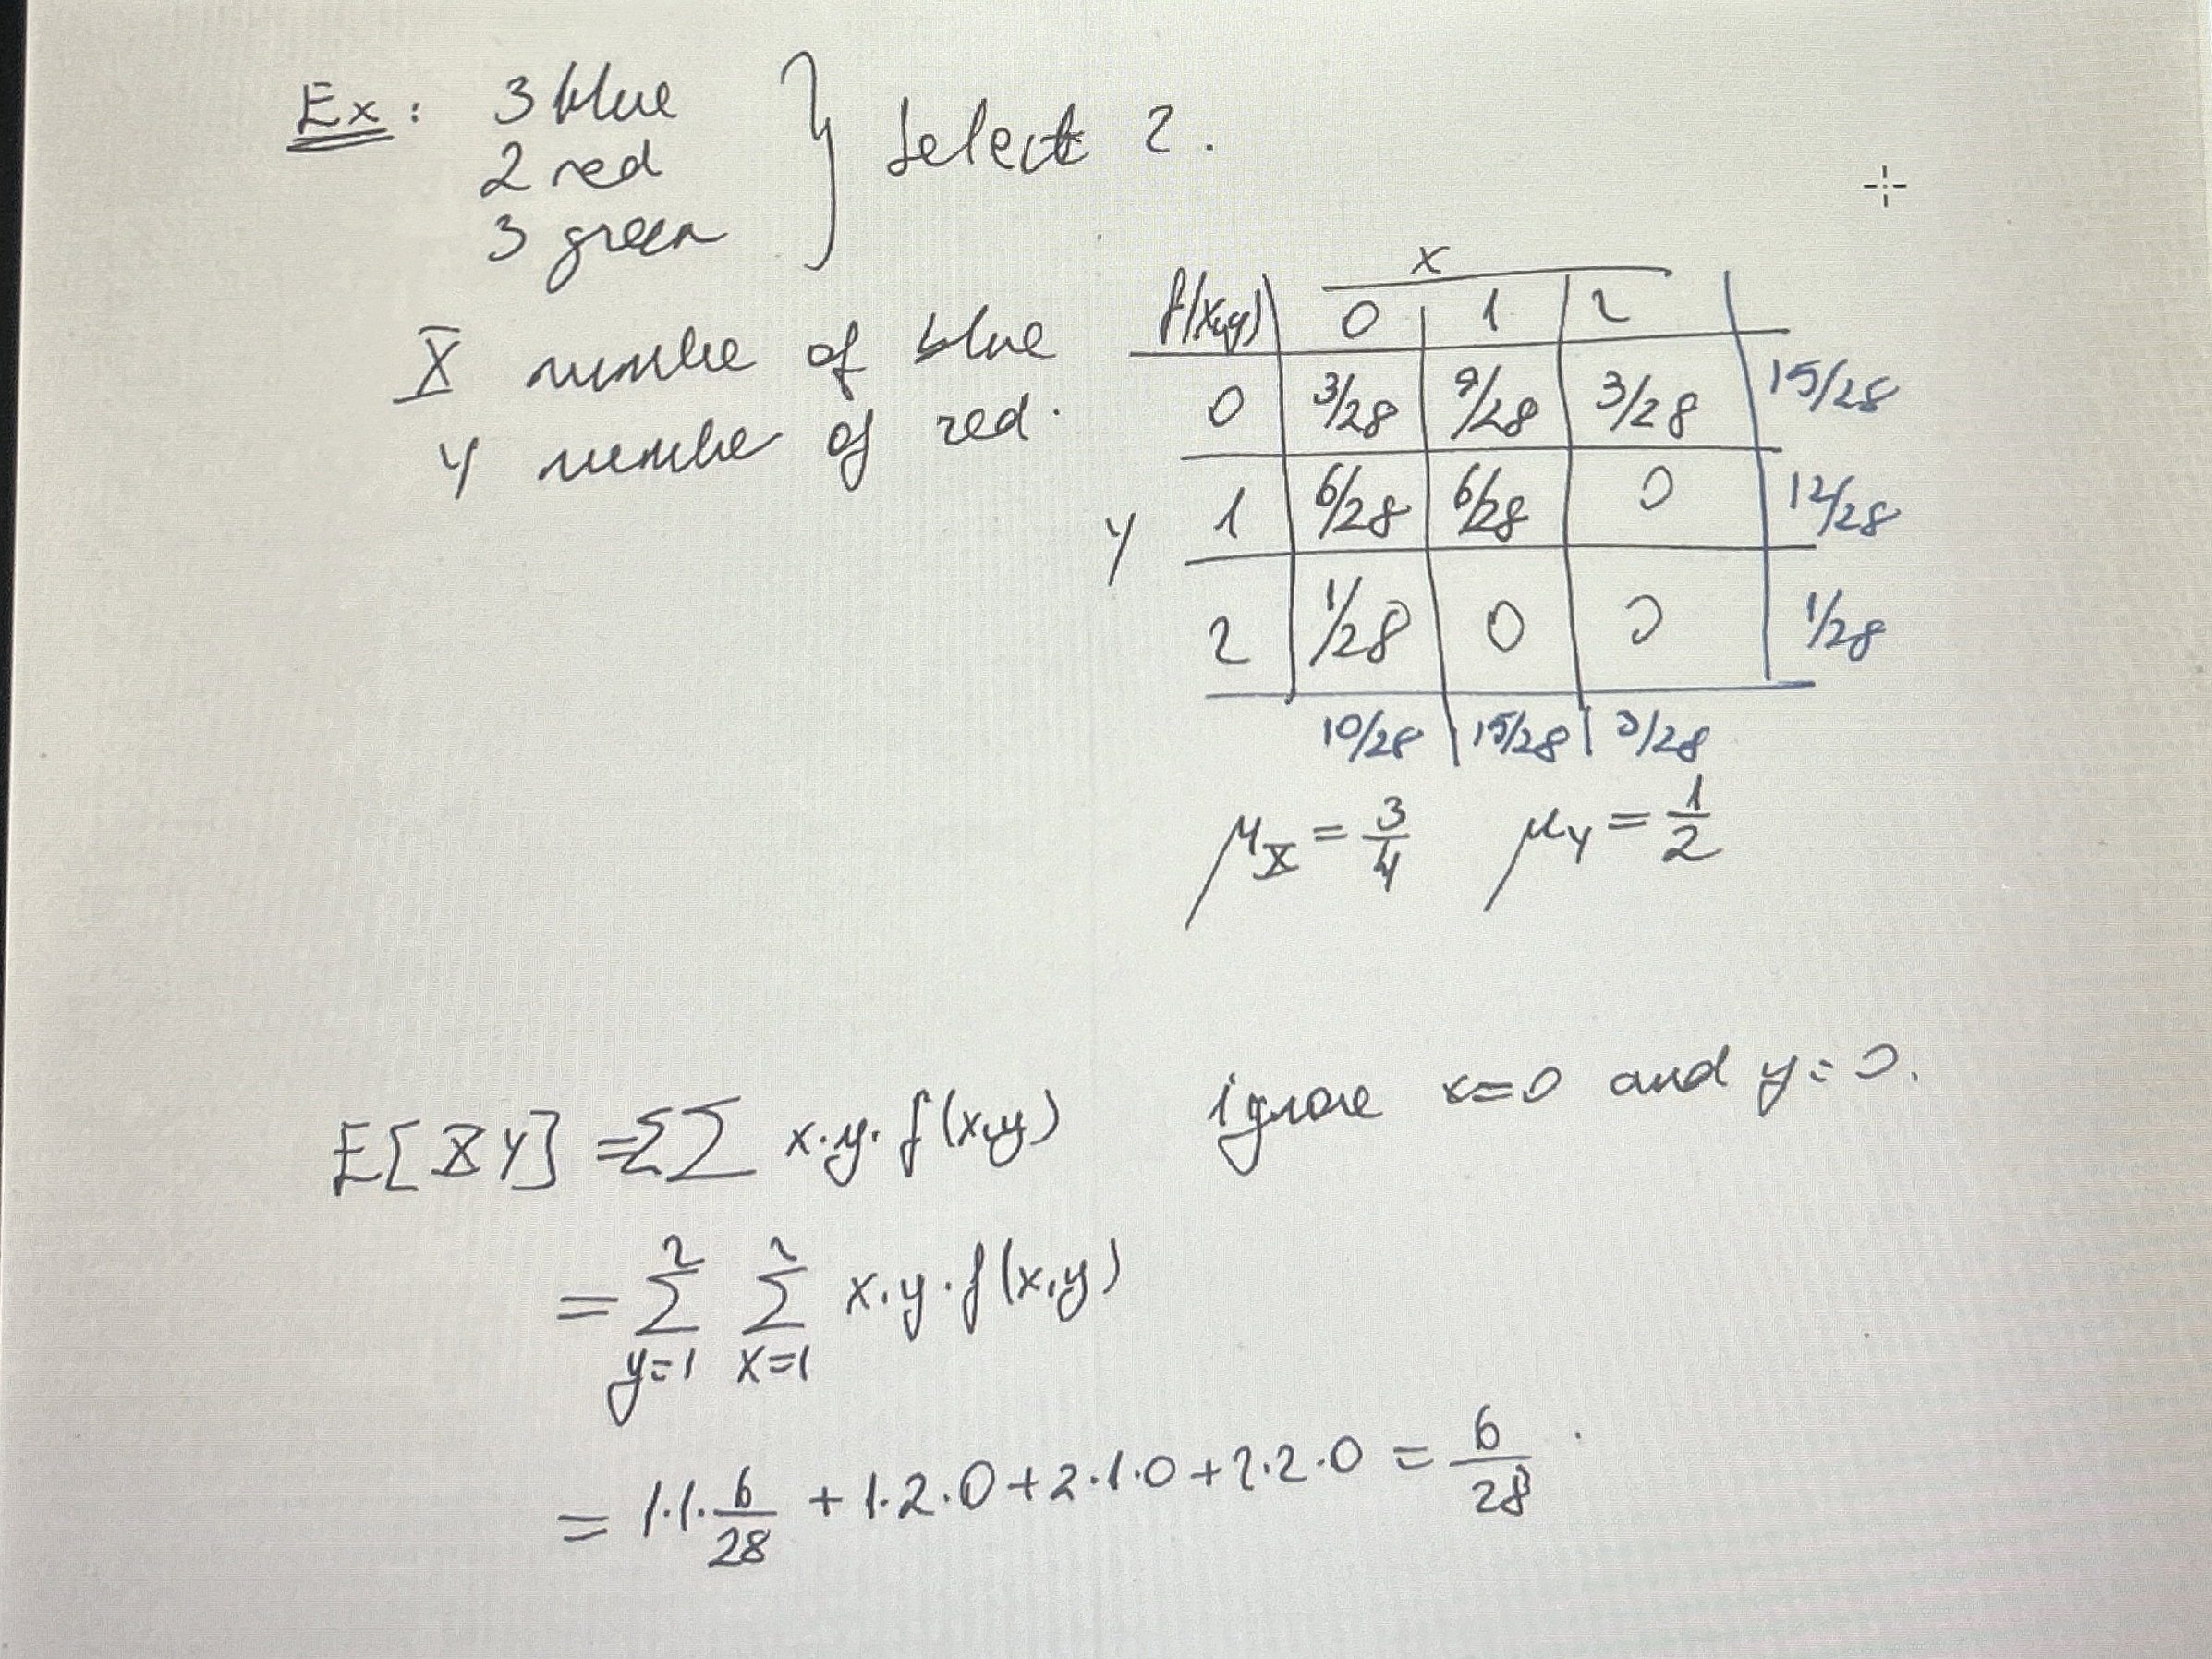 Ex: 3 blue
2 red
3 green
} Select 2.
X numbe of blue
Y numbe of red.
x
f(x,y) 0 1 2
0 3/28 9/28 3/28 15/28
y 1 6/28 6/28 0 12/28
2 1/28 0 0 1/28
10/28 15/28 3/28
μ_X = 3/4 μ_Y = 1/2
E[XY] = ΣΣ x·y·f(x,y) ignore x=0 and y=0.
= Σ_{y=1}^{2} Σ_{x=1}^{2} x·y·f(x,y)
= 1·1·6/28 + 1·2·0 + 2·1·0 + 2·2·0 = 6/28.